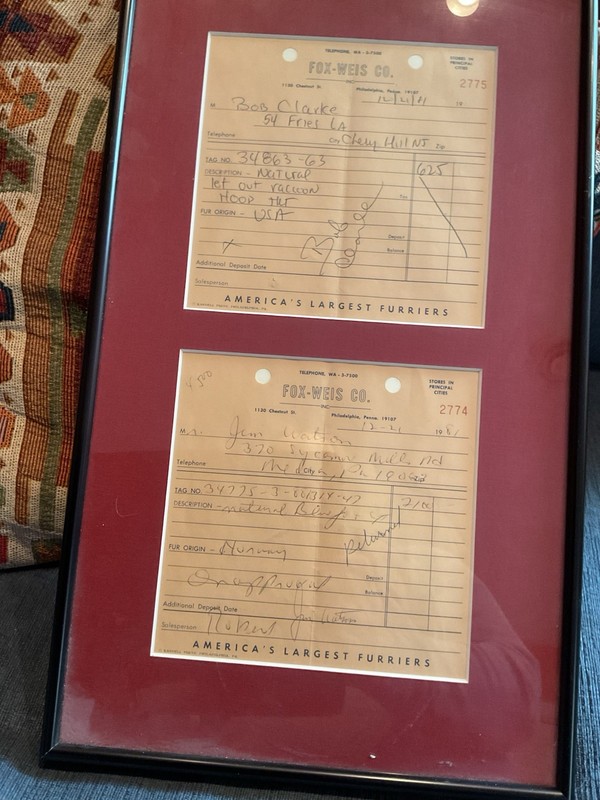 TELEPHONE, WA - 5-7300
STORES IN PRINCIPAL CITIES
FOX-WEIS CO.
INC.
2775
1130 Chestnut St. Philadelphia, Penna. 19107
12/21/81 19
M Bob Clarke
54 Fries LA
Telephone City Cherry Hill NJ Zip
TAG NO. 34863-63 625
DESCRIPTION - Natural
let out racoon
Tax
FUR ORIGIN - USA
Deposit
Balance
X Bob Clarke
Additional Deposit Date
Salesperson
AMERICA'S LARGEST FURRIERS
TELEPHONE, WA - 5-7300
STORES IN PRINCIPAL CITIES
4500
FOX-WEIS CO.
INC.
2774
1130 Chestnut St. Philadelphia, Penna. 19107
12-21 1981
M Jim Watson
370 Sycamore Mills Rd
Telephone City Zip
TAG NO.
DESCRIPTION - natural Blue fox
returned
FUR ORIGIN - Norway
Deposit
On approval
Balance
Additional Deposit Date Jim Watson
Salesperson Robert
AMERICA'S LARGEST FURRIERS